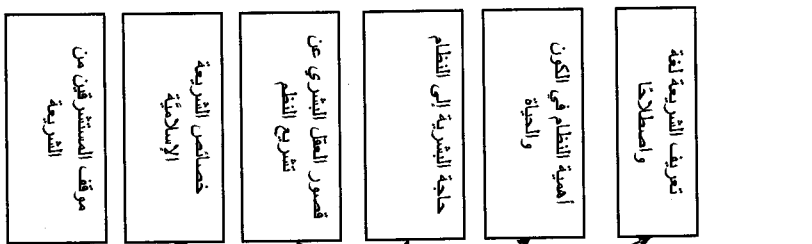 تعريف الشريعة لغة
واصطلاحًا
أهمية النظام في الكون
والحياة
حاجة البشرية إلى النظام
قصور العقل البشري عن
تشريع النظم
خصائص الشريعة
الإسلاميَّة
موقف المستشرقين من
الشريعة